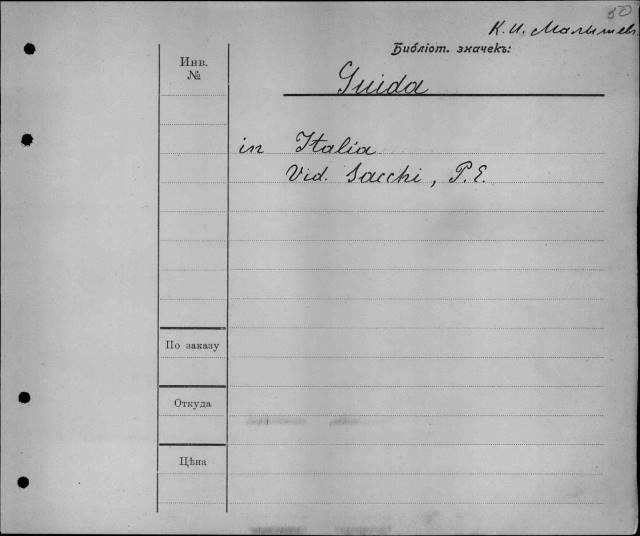 50
К. И. Малышев.
Библіот. значекъ:
Инв.
№
Guida
in Italia
Vid. Sacchi, P. E.
По заказу
Откуда
Цѣна